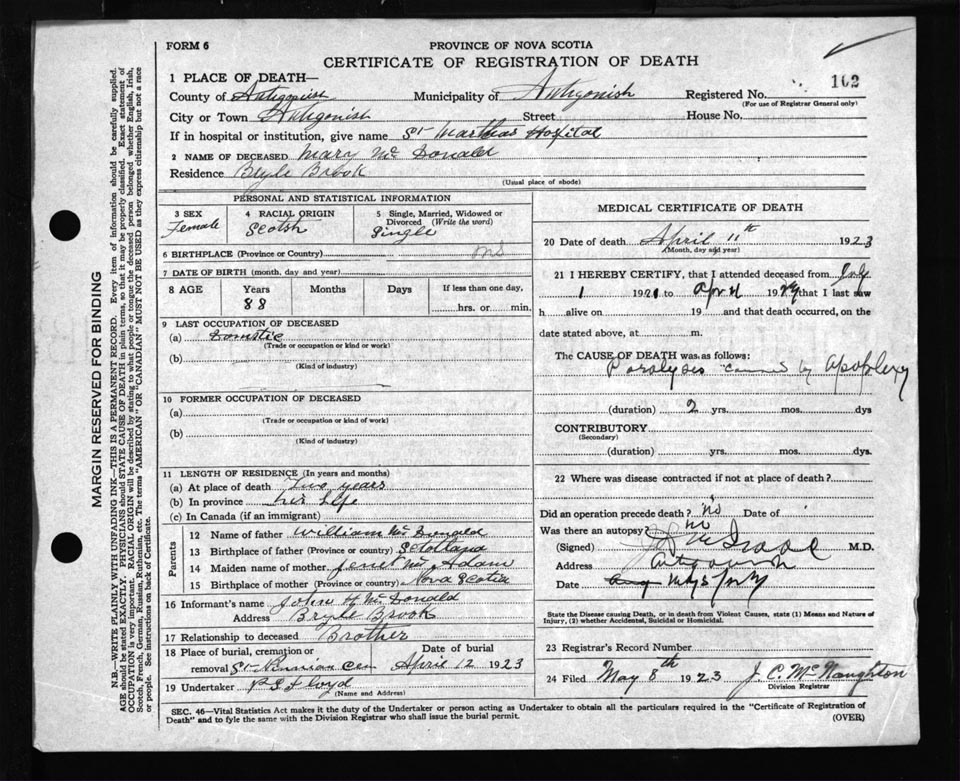 FORM 6
PROVINCE OF NOVA SCOTIA
CERTIFICATE OF REGISTRATION OF DEATH
102
1 PLACE OF DEATH—
County of Antigonish Municipality of Antigonish Registered No.
(For use of Registrar General only)
City or Town Antigonish Street House No.
If in hospital or institution, give name St Marthas Hospital
2 NAME OF DECEASED Mary Mc Donald
Residence Bryle Brook
(Usual place of abode)
PERSONAL AND STATISTICAL INFORMATION
3 SEX Female
4 RACIAL ORIGIN Scotsh
5 Single, Married, Widowed or Divorced (Write the word) Single
6 BIRTHPLACE (Province or Country) NS
7 DATE OF BIRTH (month, day and year)
8 AGE Years 88 Months Days If less than one day, hrs. or min.
9 LAST OCCUPATION OF DECEASED
(a) Domstic
(Trade or occupation or kind or work)
(b)
(Kind of industry)
10 FORMER OCCUPATION OF DECEASED
(a)
(Trade or occupation or kind of work)
(b)
(Kind of industry)
11 LENGTH OF RESIDENCE (In years and months)
(a) At place of death Two years
(b) In province her life
(c) In Canada (if an immigrant)
Parents
12 Name of father William Mc Donald
13 Birthplace of father (Province or country)
14 Maiden name of mother Jenet Mc Adam
15 Birthplace of mother (Province or country) Nova Scotia
16 Informant's name John H Mc Donald
Address Bryle Brook
17 Relationship to deceased Brother
18 Place of burial, cremation or removal St Ninnian Cem
Date of burial April 12 1923
19 Undertaker Floyd
(Name and Address)
MEDICAL CERTIFICATE OF DEATH
20 Date of death April 11th 1923
(Month, day and year)
21 I HEREBY CERTIFY, that I attended deceased from July
1 1921 to April 19 that I last saw
h alive on 19 and that death occurred, on the
date stated above, at m.
The CAUSE OF DEATH was as follows:
Paralysis caused by apoplexy
(duration) 2 yrs. mos. dys
CONTRIBUTORY
(Secondary)
(duration) yrs. mos. dys.
22 Where was disease contracted if not at place of death?
Did an operation precede death? no Date of
Was there an autopsy? no
(Signed) M.D.
Address Antigonish
Date
State the Disease causing Death, or in death from Violent Causes, state (1) Means and Nature of
Injury, (2) whether Accidental, Suicidal or Homicidal.
23 Registrar's Record Number
24 Filed May 8th 1923 J. C. McNaughton
Division Registrar
SEC. 46—Vital Statistics Act makes it the duty of the Undertaker or person acting as Undertaker to obtain all the particulars required in the "Certificate of Registration of
Death" and to fyle the same with the Division Registrar who shall issue the burial permit.
(OVER)
MARGIN RESERVED FOR BINDING
N.B.—WRITE PLAINLY WITH UNFADING INK—THIS IS A PERMANENT RECORD. Every item of information should be carefully supplied.
AGE should be stated EXACTLY. PHYSICIANS should STATE CAUSE OF DEATH in plain terms, so that it may be properly classified. Exact statement of
OCCUPATION is very important. RACIAL ORIGIN will be described by stating to what people or tongue the deceased person belonged whether English, Irish,
Scotch, French, German, Russian, Ruthenian, etc. The terms "AMERICAN" OR "CANADIAN" MUST NOT BE USED as they express citizenship but not a race
or people. See instructions on back of Certificate.